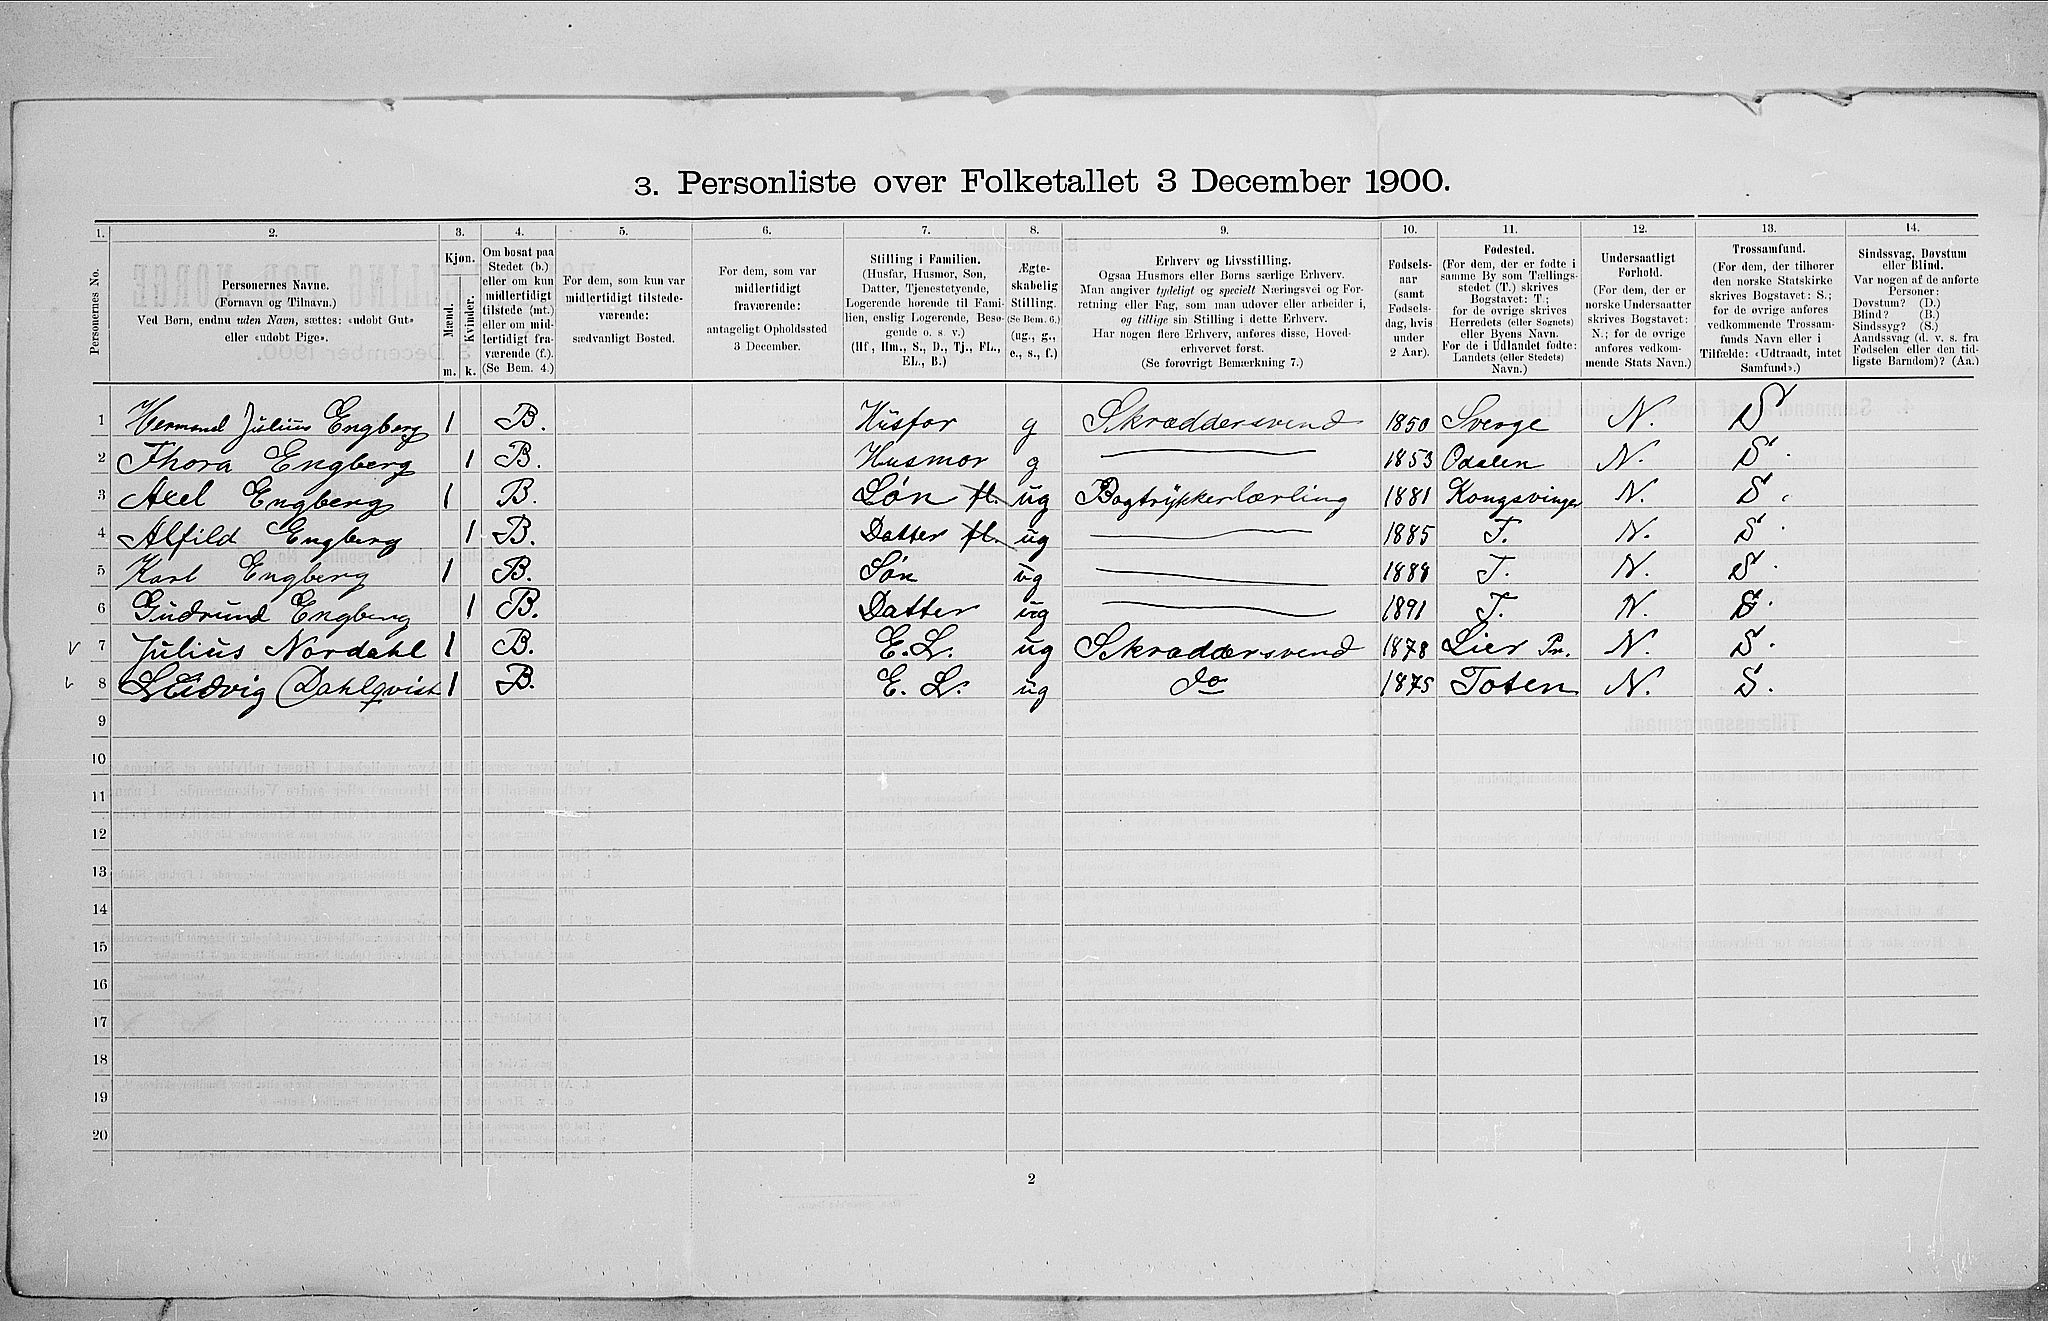 3. Personliste over Folketallet 3 December 1900.
1. 2. 3. 4. 5. 6. 7. 8. 9. 10. 11. 12. 13. 14.
Personernes No.
Personernes Navne.
(Fornavn og Tilnavn.)
Ved Børn, endnu uden Navn, sættes: «udøbt Gut»
eller «udøbt Pige».
Kjøn.
Mænd.
Kvinder.
m. k.
Om bosat paa
Stedet (b.)
eller om kun
midlertidigt
tilstede (mt.)
eller om mid-
lertidigt fra-
værende (f.).
(Se Bem. 4.)
For dem, som kun var
midlertidigt tilstede-
værende:
sædvanligt Bosted.
For dem, som var
midlertidigt
fraværende:
antageligt Opholdssted
3 December.
Stilling i Familien.
(Husfar, Husmor, Søn,
Datter, Tjenestetyende,
Logerende hørende til Fami-
lien, enslig Logerende, Besø-
gende o. s v.)
(Hf, Hm., S., D., Tj., FL.,
EL., B.)
Ægte-
skabelig
Stilling.
(Se Bem. 6.)
(ug., g.,
e., s., f.)
Erhverv og Livsstilling.
Ogsaa Husmors eller Børns særlige Erhverv.
Man angiver tydeligt og specielt Næringsvei og For-
retning eller Fag, som man udøver eller arbeider i,
og tillige sin Stilling i dette Erhverv.
Har nogen flere Erhverv, anføres disse, Hoved-
erhvervet først.
(Se forøvrigt Bemærkning 7.)
Fødsels-
aar
(samt
Fødsels-
dag, hvis
under
2 Aar).
Fødested.
(For dem, der er fødte i
samme By som Tællings-
stedet (T.) skrives
Bogstavet: T.;
for de øvrige skrives
Herredets (eller Sognets)
eller Byens Navn.
For de i Udlandet fødte:
Landets (eller Stedets)
Navn.)
Undersaatligt
Forhold.
(For dem, der er
norske Undersaatter
skrives Bogstavet:
N.; for de øvrige
anføres vedkom-
mende Stats Navn.)
Trossamfund.
(For dem, der tilhører
den norske Statskirke
skrives Bogstavet: S.;
for de øvrige anføres
vedkommende Trossam-
funds Navn eller i
Tilfælde: «Udtraadt, intet
Samfund».)
Sindssvag, Døvstum
eller Blind.
Var nogen af de anførte
Personer:
Døvstum? (D.)
Blind? (B.)
Sindssyg? (S.)
Aandssvag (d. v. s. fra
Fødselen eller den tid-
ligste Barndom)? (Aa.)
1 Hermand Julius Engberg 1 B. Husfar g Skræddersvend 1850 Sverge N. S
2 Thora Engberg 1 B. Husmor g 1853 Odalen N. S.
3 Axel Engberg 1 B. Søn fl. ug Bogtrykkerlærling 1881 Kongsvinger N. S.
4 Alfild Engberg 1 B. Datter fl. ug 1885 T. N. S.
5 Karl Engberg 1 B. Søn ug 1888 T. N. S.
6 Gudrund Engberg 1 B. Datter ug 1891 T. N. S.
7 Julius Nordahl 1 B. E. L. ug Skræddersvend 1878 Lier Pr. N. S.
8 Ludvig Dahlqvist 1 B. E. L. ug do 1875 Toten N. S.
9
10
11
12
13
14
15
16
17
18
19
20
2